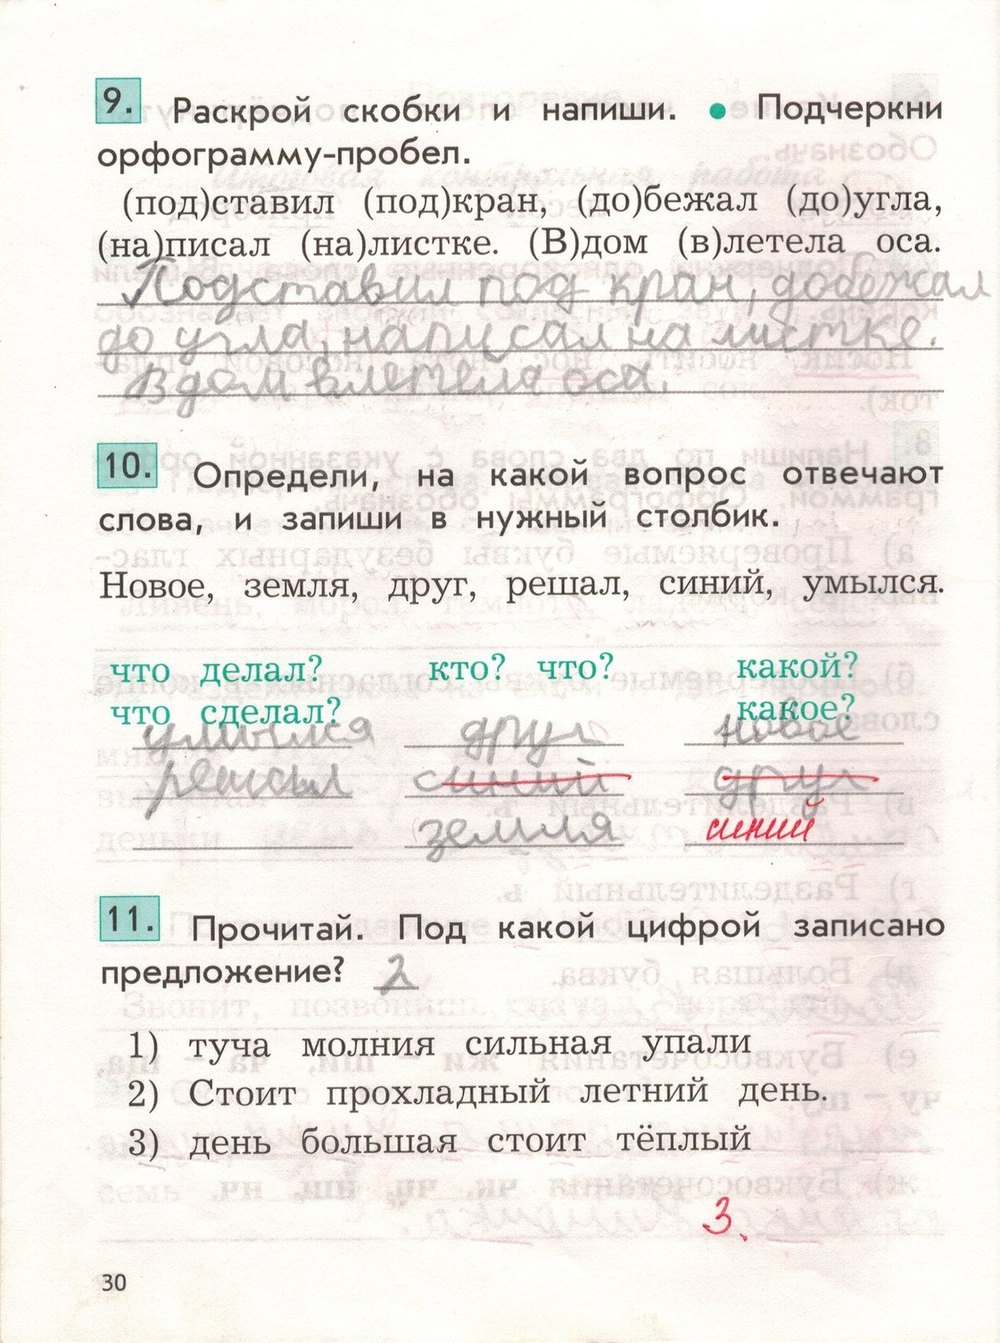 9. Раскрой скобки и напиши. • Подчеркни
орфограмму-пробел.
(под)ставил (под)кран, (до)бежал (до)угла,
(на)писал (на)листке. (В)дом (в)летела оса.
Подставил под кран, добежал
до угла, написал на листке.
В дом влетела оса.
10. Определи, на какой вопрос отвечают
слова, и запиши в нужный столбик.
Новое, земля, друг, решал, синий, умылся.
что делал? кто? что? какой?
что сделал? какое?
умылся друг новое
решал синий друг
земля синий
11. Прочитай. Под какой цифрой записано
предложение? 2
1) туча молния сильная упали
2) Стоит прохладный летний день.
3) день большая стоит тёплый
3.
30